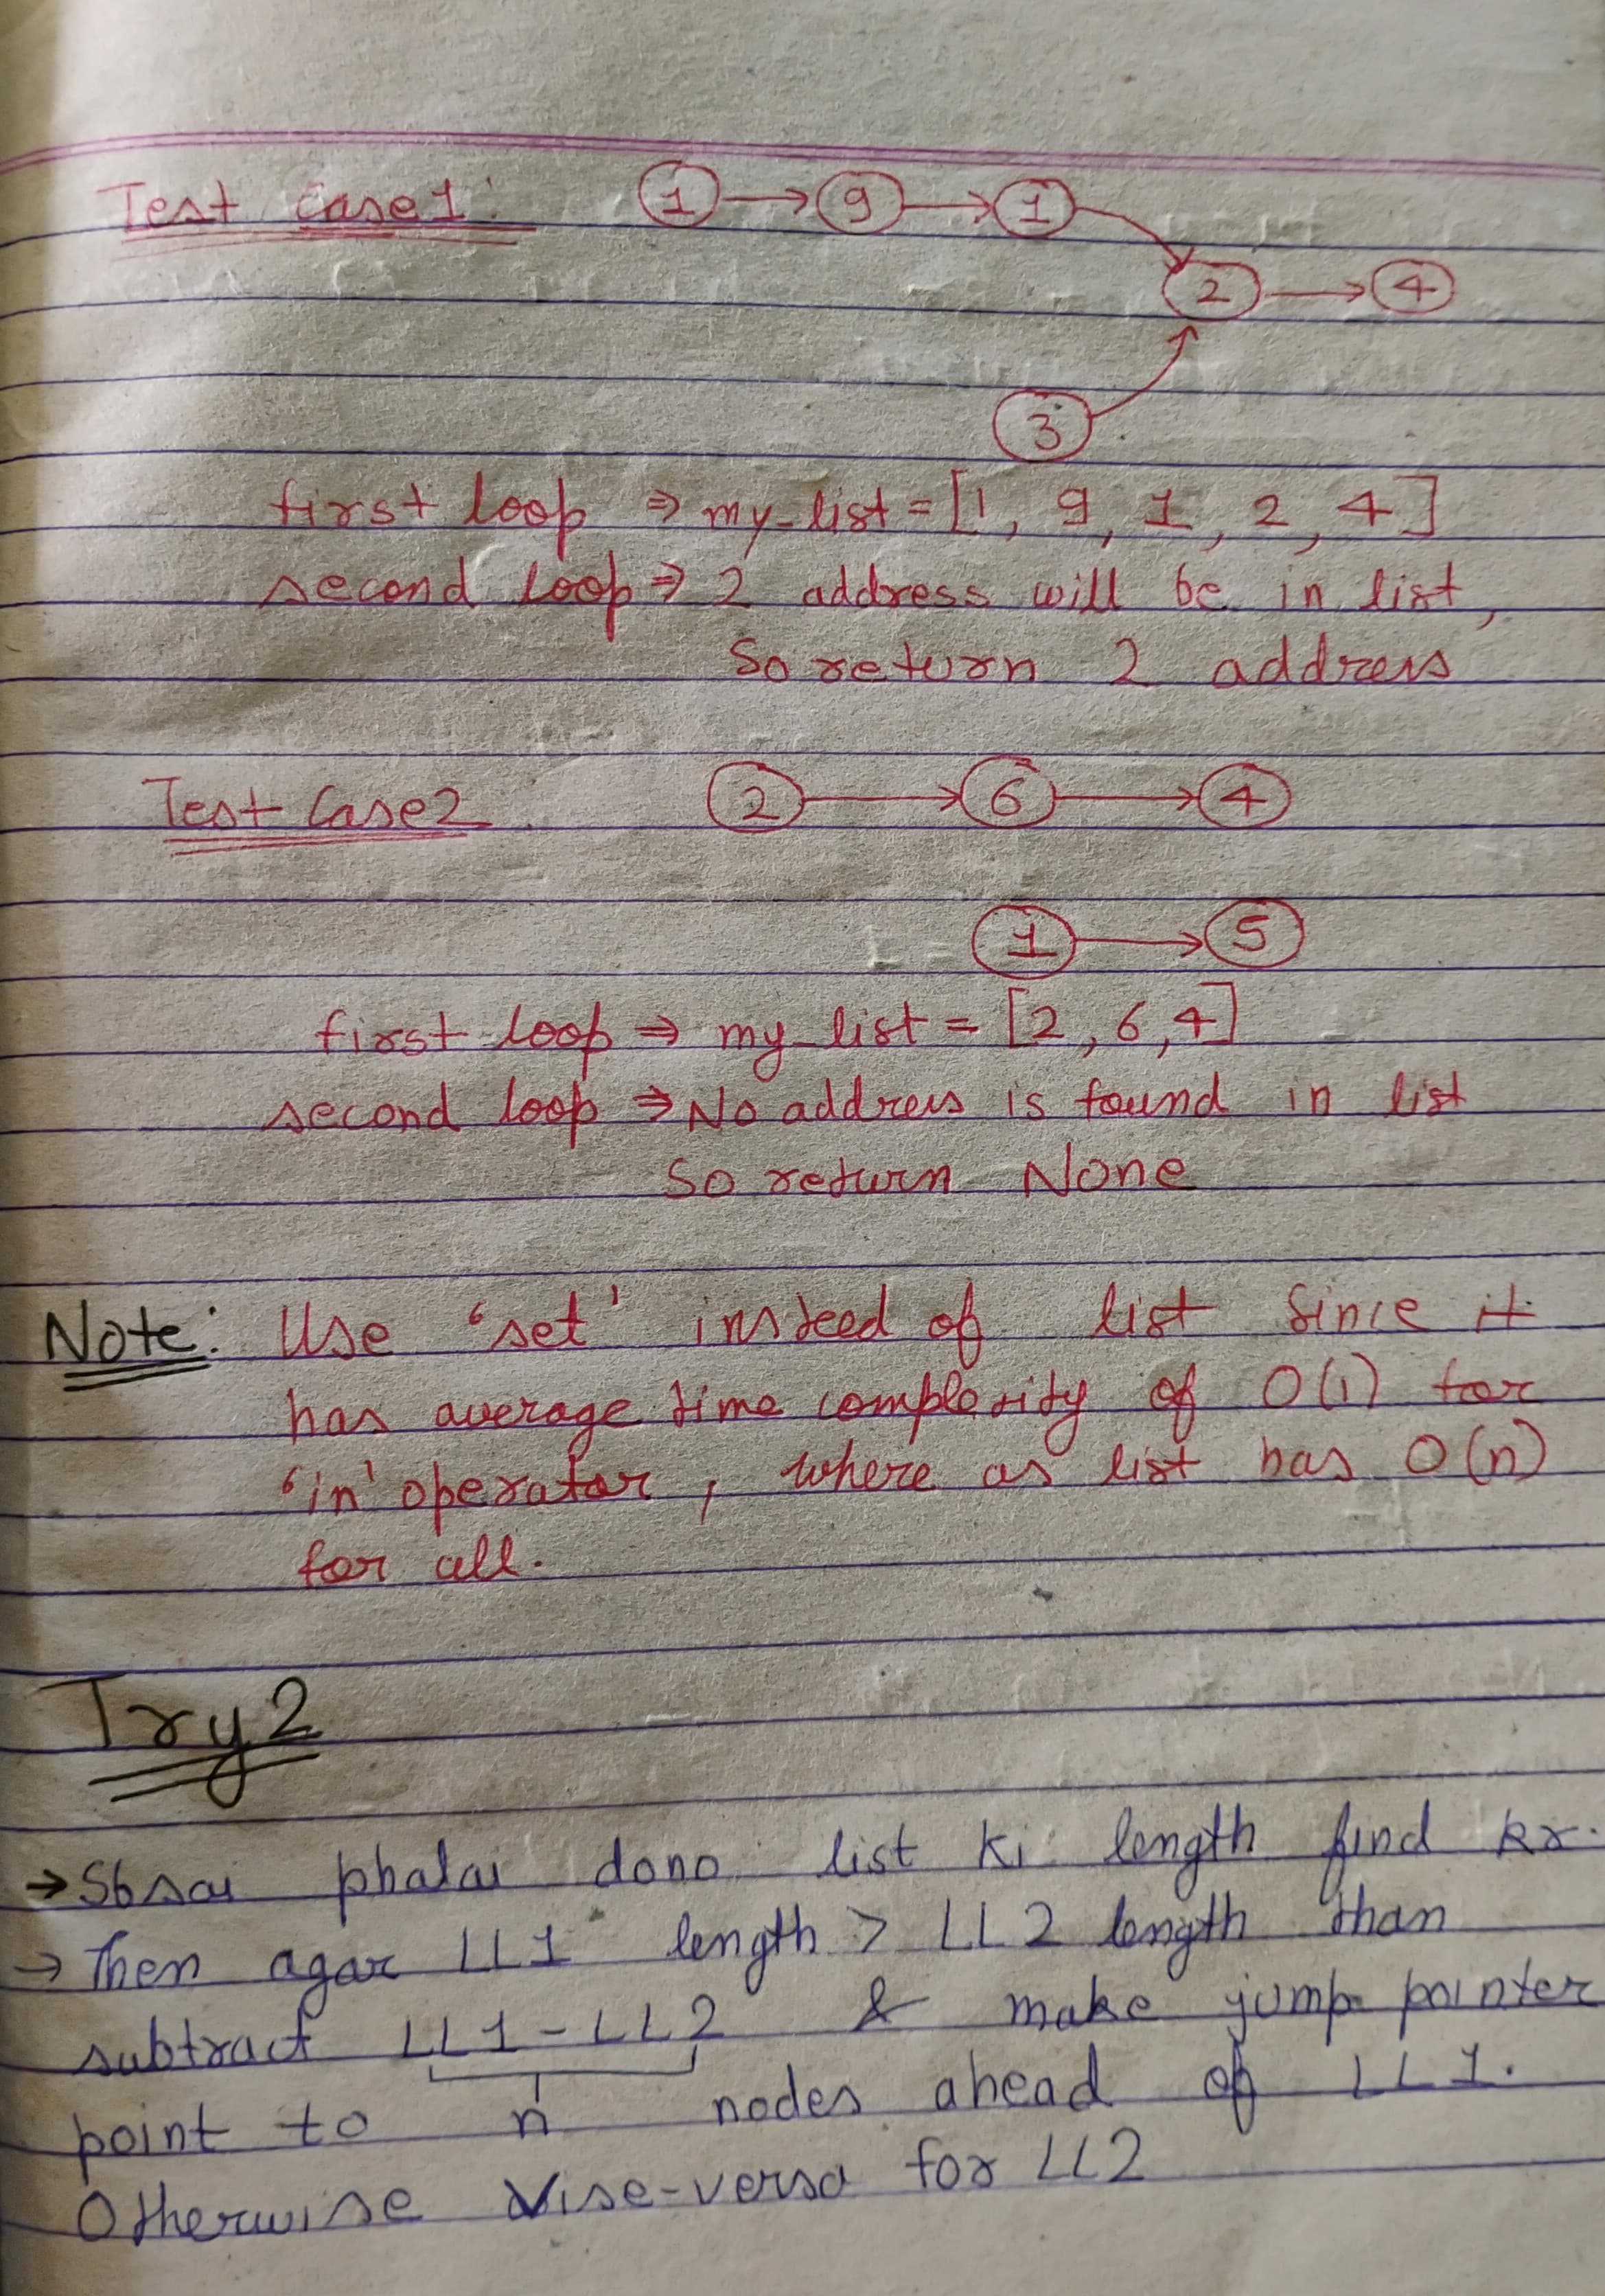 Test Case1: 1 → 9 → 1
2 → 4
3
first loop ⇒ my_list = [1, 9, 1, 2, 4]
second loop ⇒ 2 address will be in list,
So return 2 address
Test Case2 2 → 6 → 4
1 → 5
first loop ⇒ my_list = [2, 6, 4]
second loop ⇒ No address is found in list
So return None
Note: Use 'set' insteed of list Since it
has average time complexity of O(1) for
'in' operator, where as list has O(n)
for all.
Try2
→ Sbsai phalai dono list ki length find kr.
→ Then agar LL1 length > LL2 length than
subtract LL1 - LL2 & make jump pointer
point to n nodes ahead of LL1.
Otherwise vise-versa for LL2